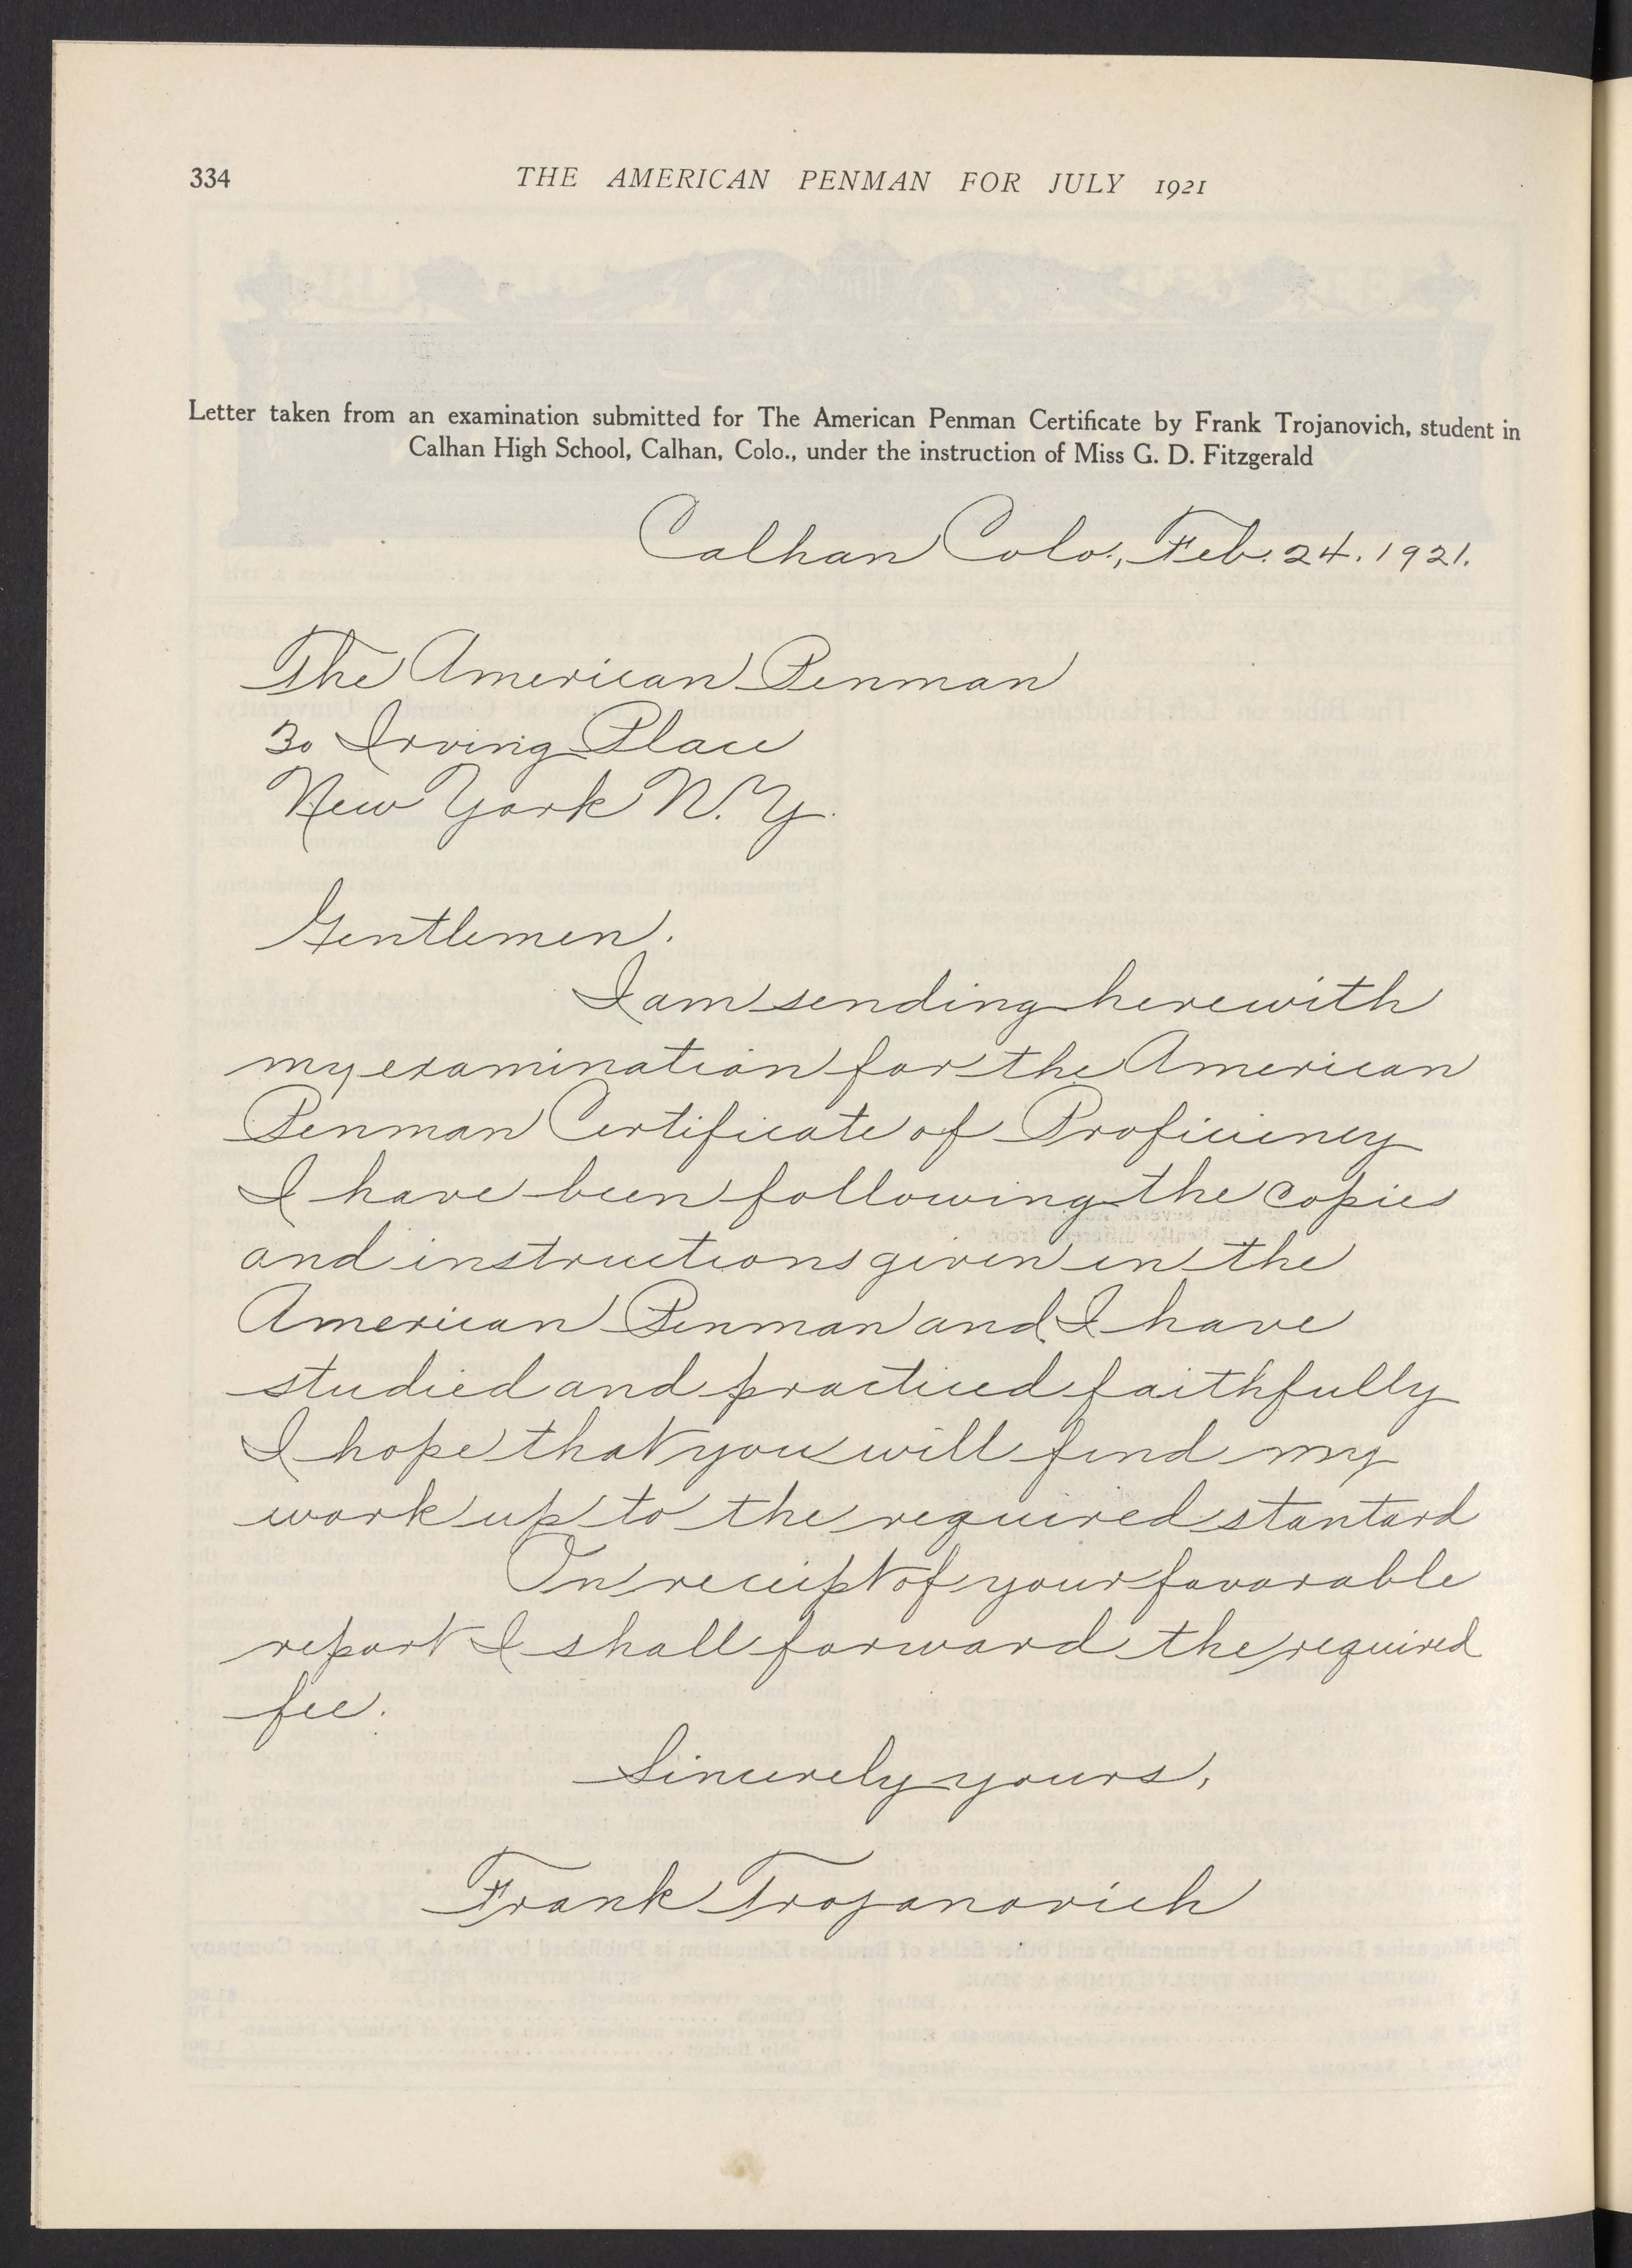 334
THE AMERICAN PENMAN FOR JULY 1921
Letter taken from an examination submitted for The American Penman Certificate by Frank Trojanovich, student in
Calhan High School, Calhan, Colo., under the instruction of Miss G. D. Fitzgerald
Calhan Colo., Feb. 24. 1921.
The American Penman
30 Irving Place
New York N.Y.
Gentlemen.
I am sending herewith
my examination for the American
Penman Certificate of Proficiency
I have been following the copies
and instructions given in the
American Penman and I have
studied and practiced faithfully
I hope that you will find my
work up to the required stantard
On receipt of your favorable
report I shall forward the required
fee.
Sincerely yours,
Frank Trojanovich